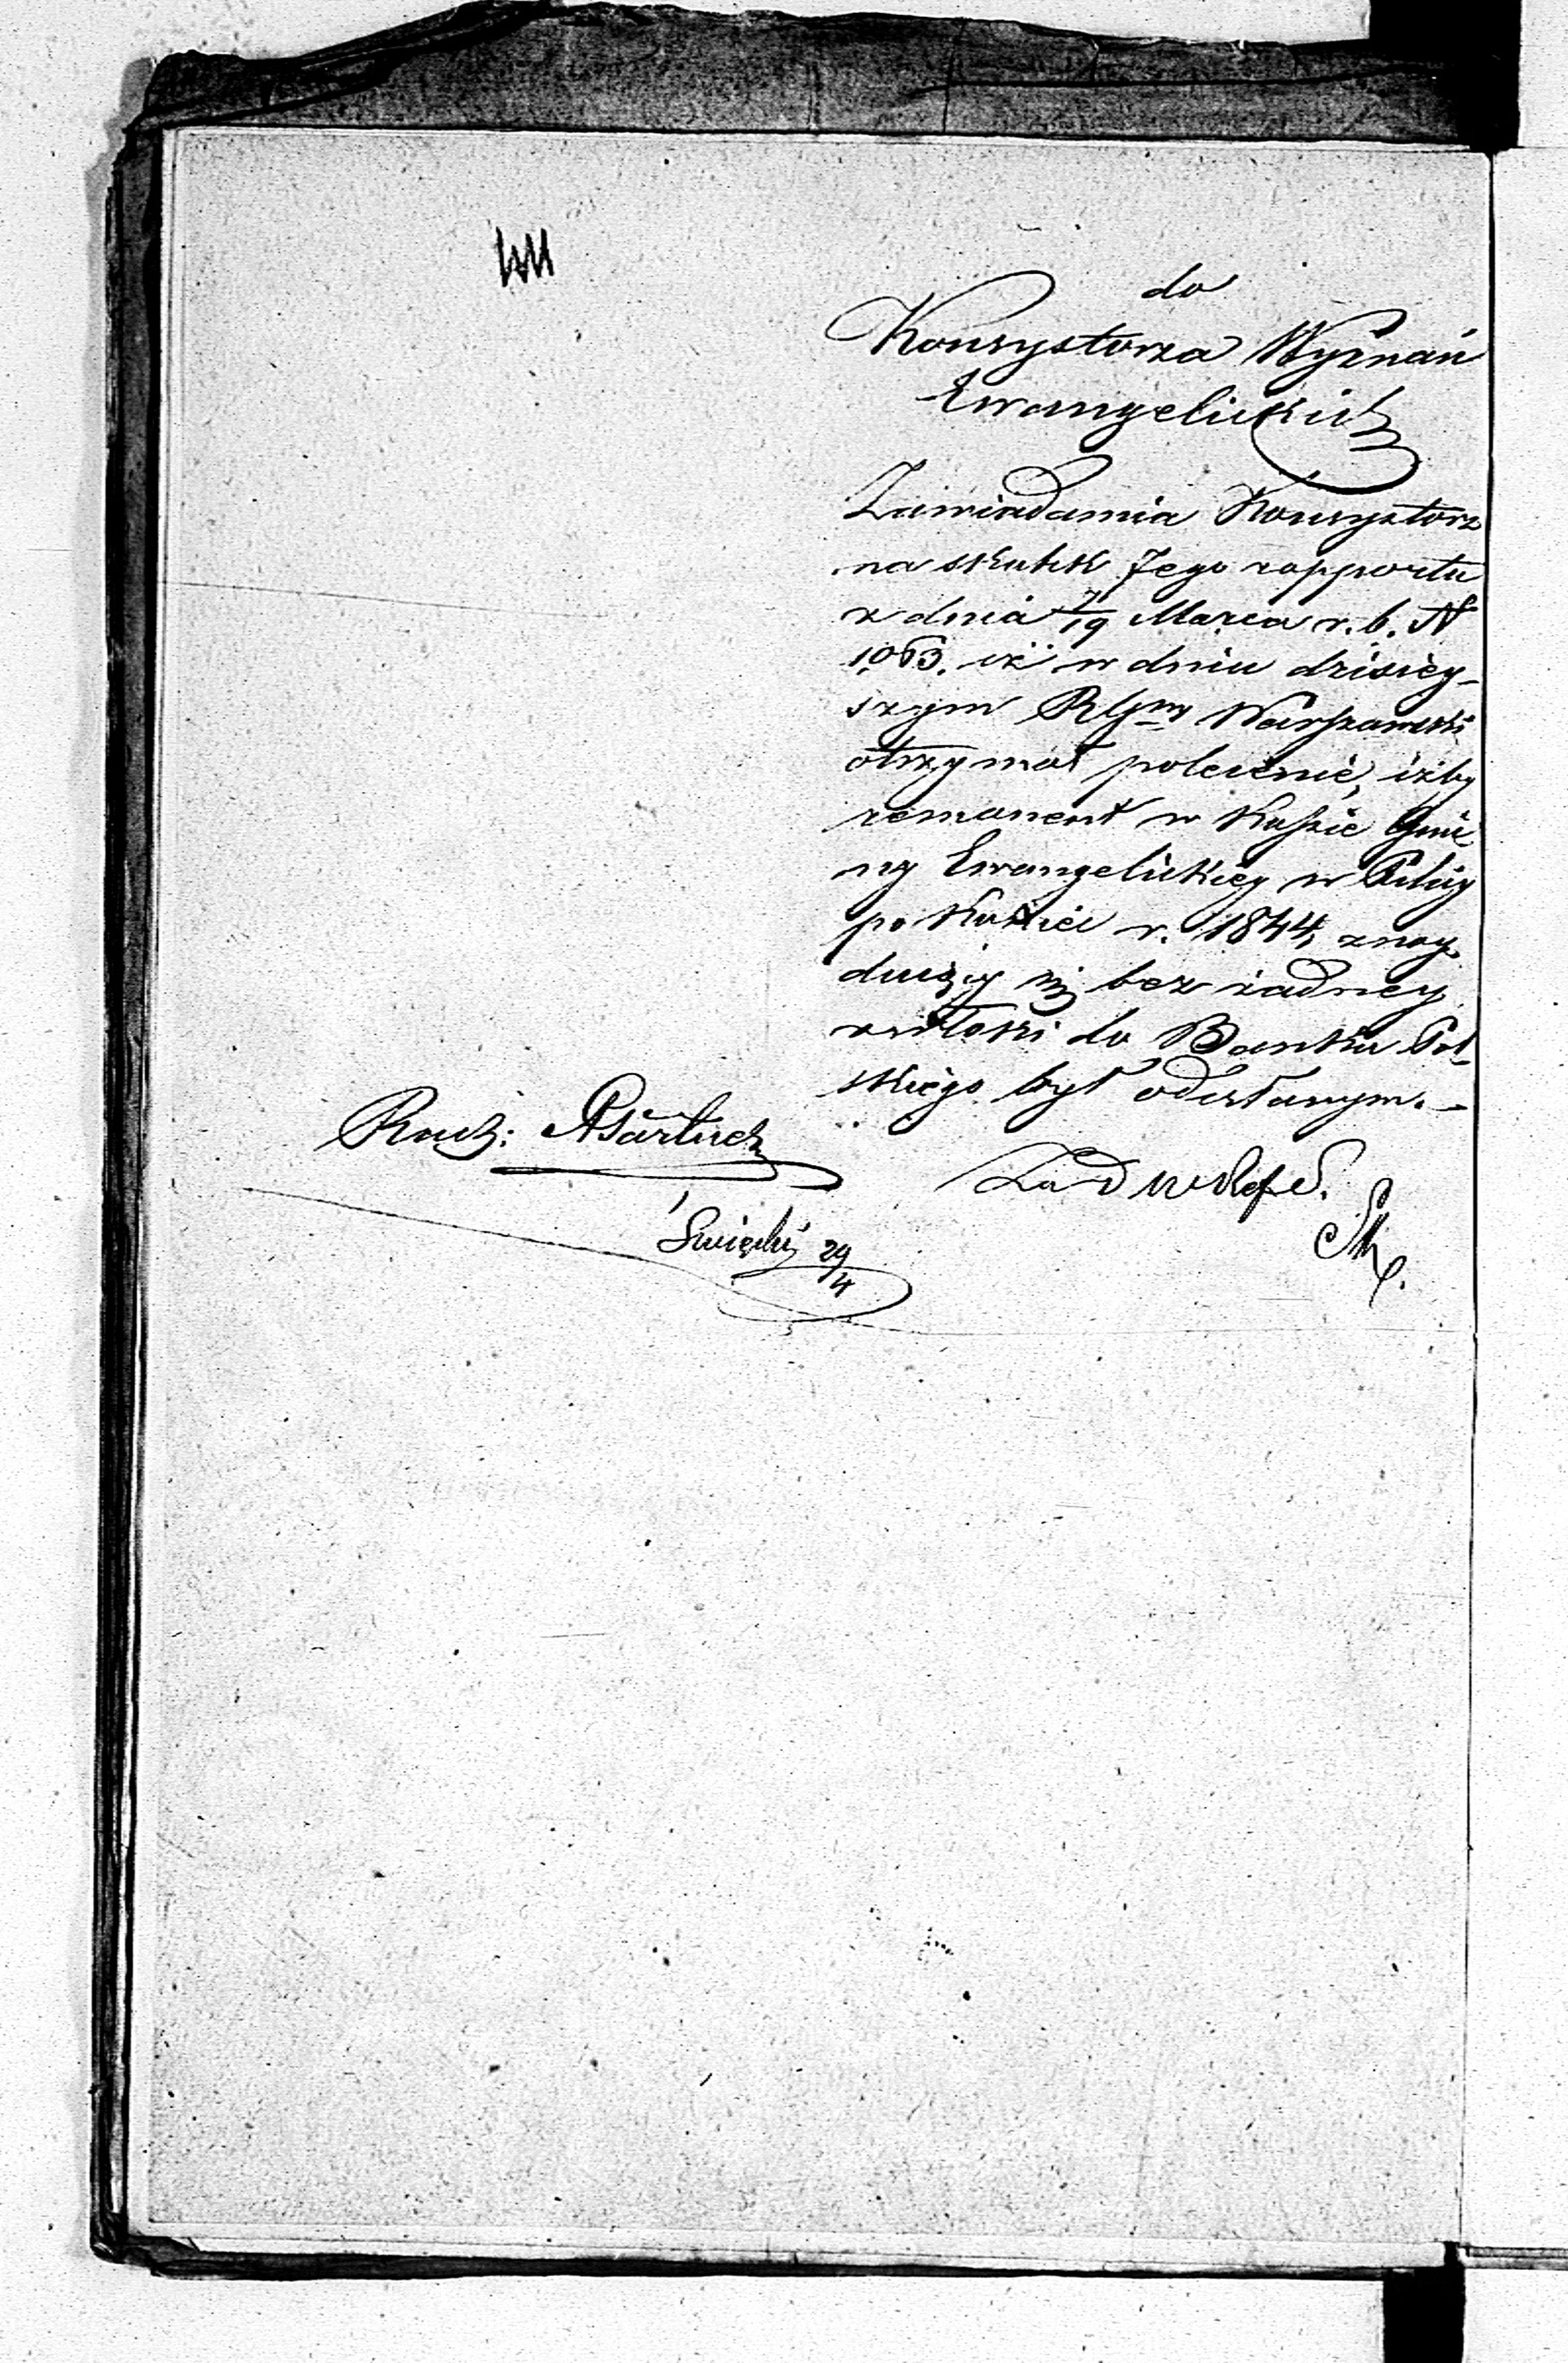 do
Konsystorza Wyznań
Ewangelickich
Zawiadamia Konsystorz
na skutek Jego rapportu
z dnia 7/19 Marca r. b. N
1063. iż w dniu dzisiey-
szym RGny Warszawski
otrzymał polecenie, iżby
remanent w Kassie Gmi
ny Ewangelickiey w Pilicy
po Końcu r. 1844, znay
duiący się bez żadney
zwłoki do Banku Pol-
skiego był odesłanym.-
Rach:
Za D W
Święcki 29/4